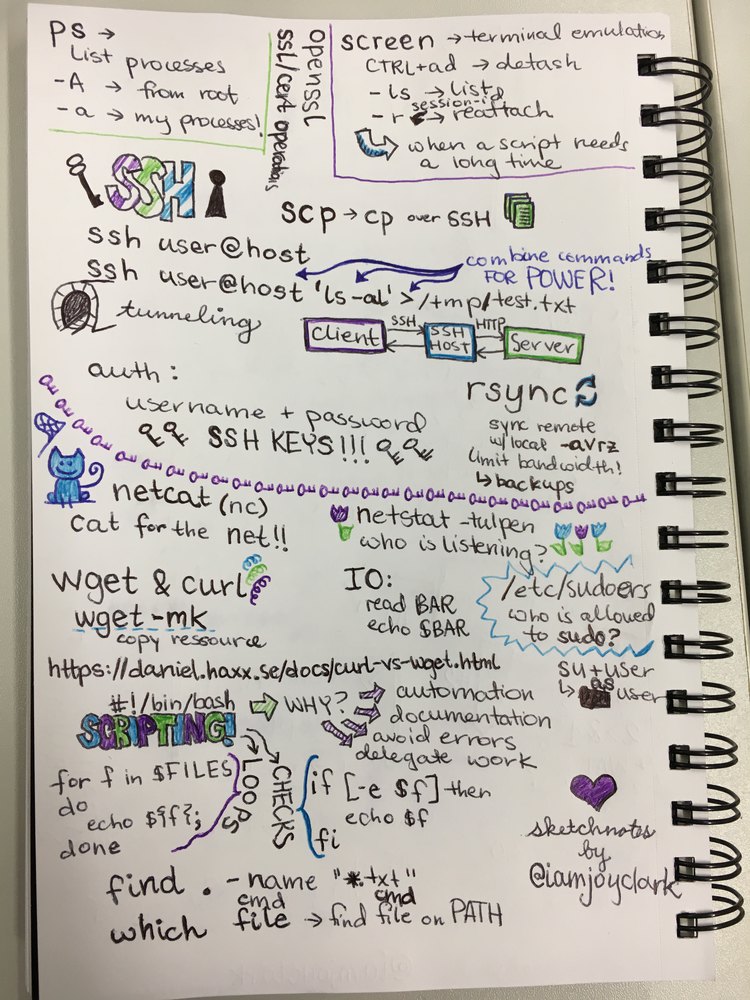 ps →
List processes
-A → from root
-a → my processes!
openssl
SSL/cert operations
screen → terminal emulation
CTRL+ad → detash
-ls → list
session-id
-r → reattach
when a script needs
a long time
SSH
scp → cp over SSH
ssh user@host
ssh user@host 'ls -al' > /tmp/test.txt
combine commands
FOR POWER!
tunneling
client
SSH
SSH
HOST
HTTP
Server
auth:
username + password
SSH KEYS!!!
rsync
sync remote
w/ local -avrz
limit bandwidth!
↳ backups
netcat (nc)
cat for the net!!
netstat -tulpen
who is listening?
wget & curl
wget -mk
copy ressource
IO:
read BAR
echo $BAR
/etc/sudoers
who is allowed
to sudo?
https://daniel.haxx.se/docs/curl-vs-wget.html
su + user
↳ as user
#!/bin/bash ⇒ WHY? ⇒ automation
⇒ documentation
⇒ avoid errors
⇒ delegate work
SCRIPTING!
LOOPS
CHECKS
for f in $FILES
do
echo ${f};
done
if [-e $f] then
echo $f
fi
sketchnotes
by
@iamjoyclark
find . -name "*.txt"
cmd cmd
which file → find file on PATH